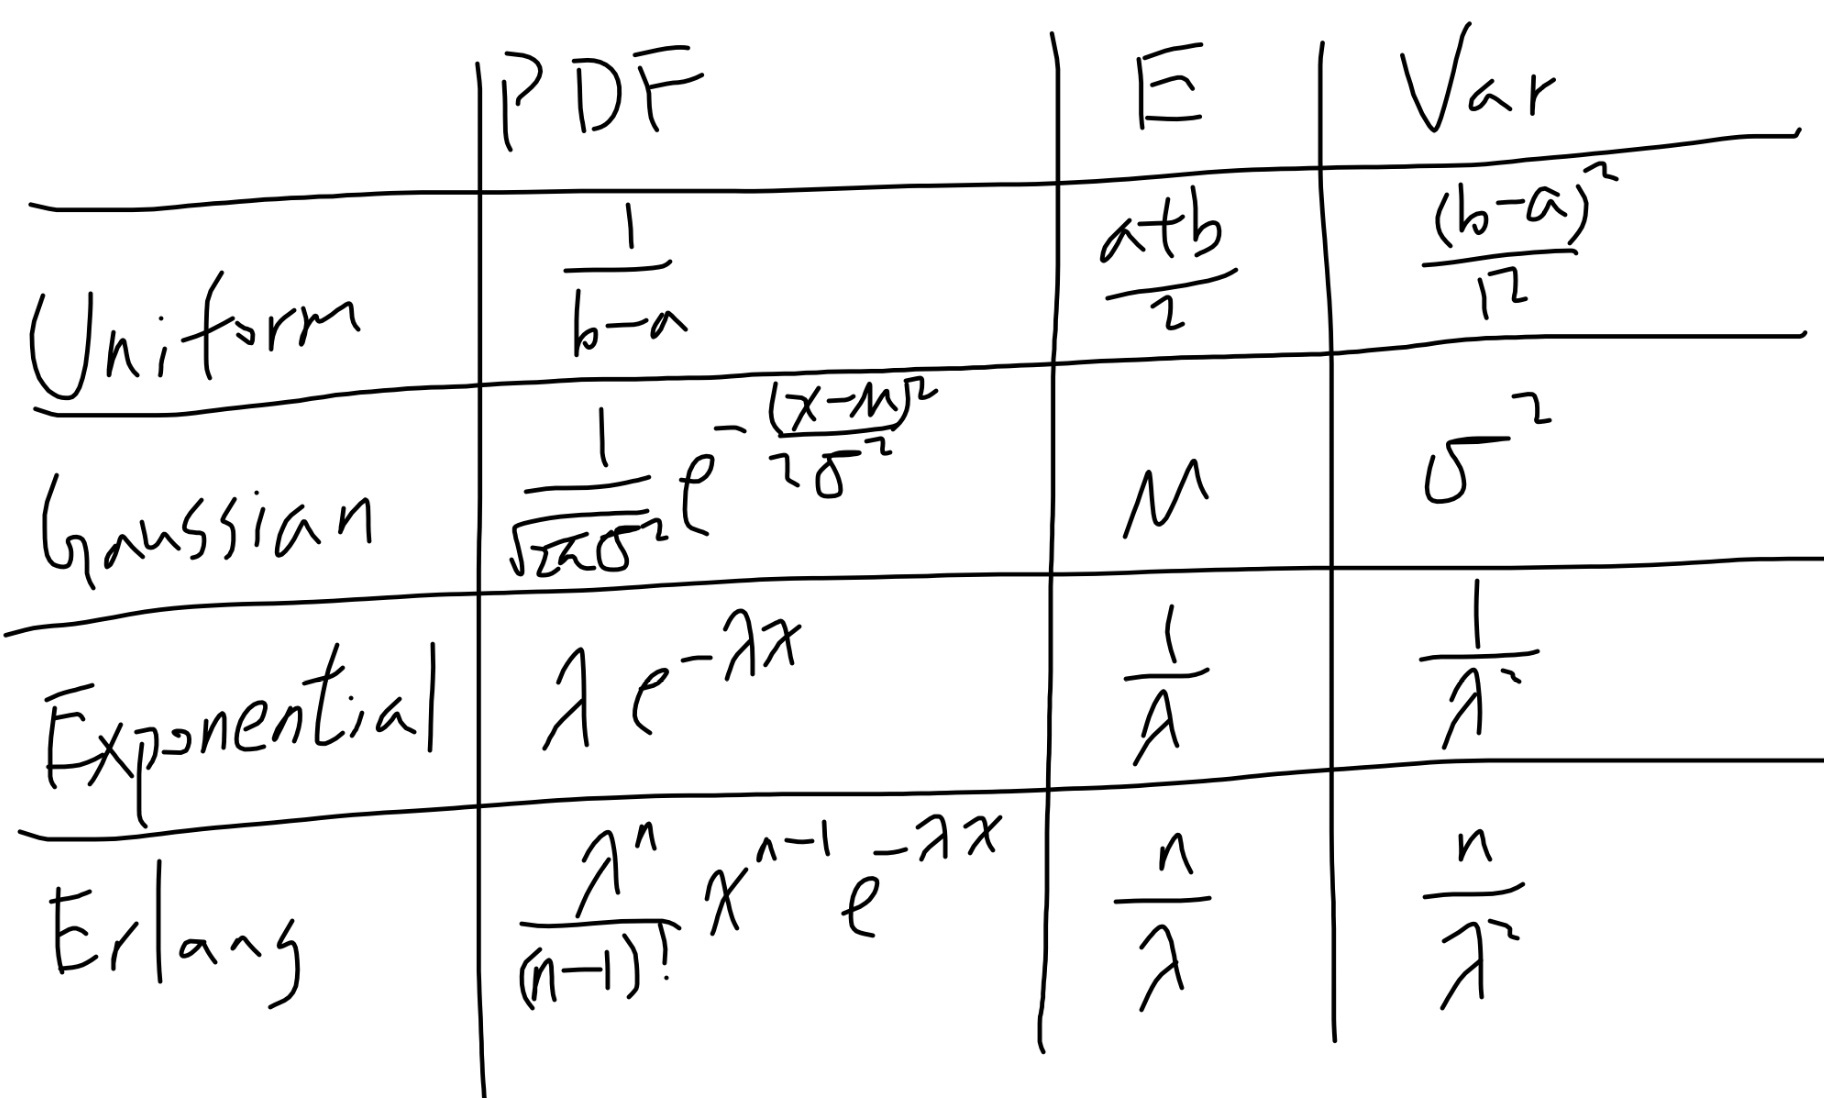 PDF E Var
Uniform 1/(b-a) (a+b)/2 (b-a)²/12
Gaussian 1/√(2πσ²) e^(-(x-μ)²/(2σ²)) μ σ²
Exponential λe^(-λx) 1/λ 1/λ²
Erlang λⁿ/(n-1)! x^(n-1) e^(-λx) n/λ n/λ²